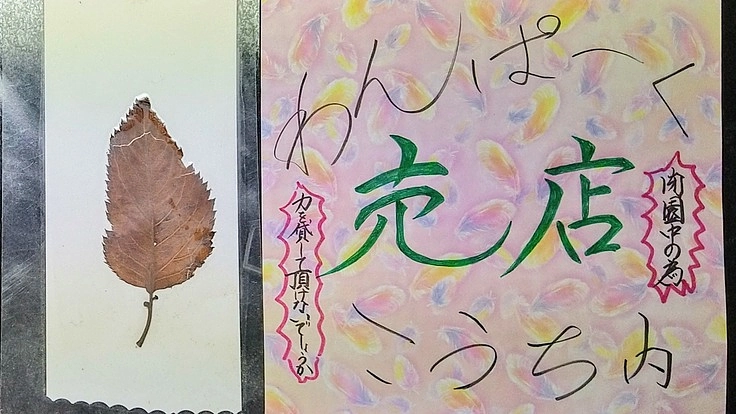 わんぱーく
閉園中の為
売店
力を貸して頂けないでしょうか
こうち内